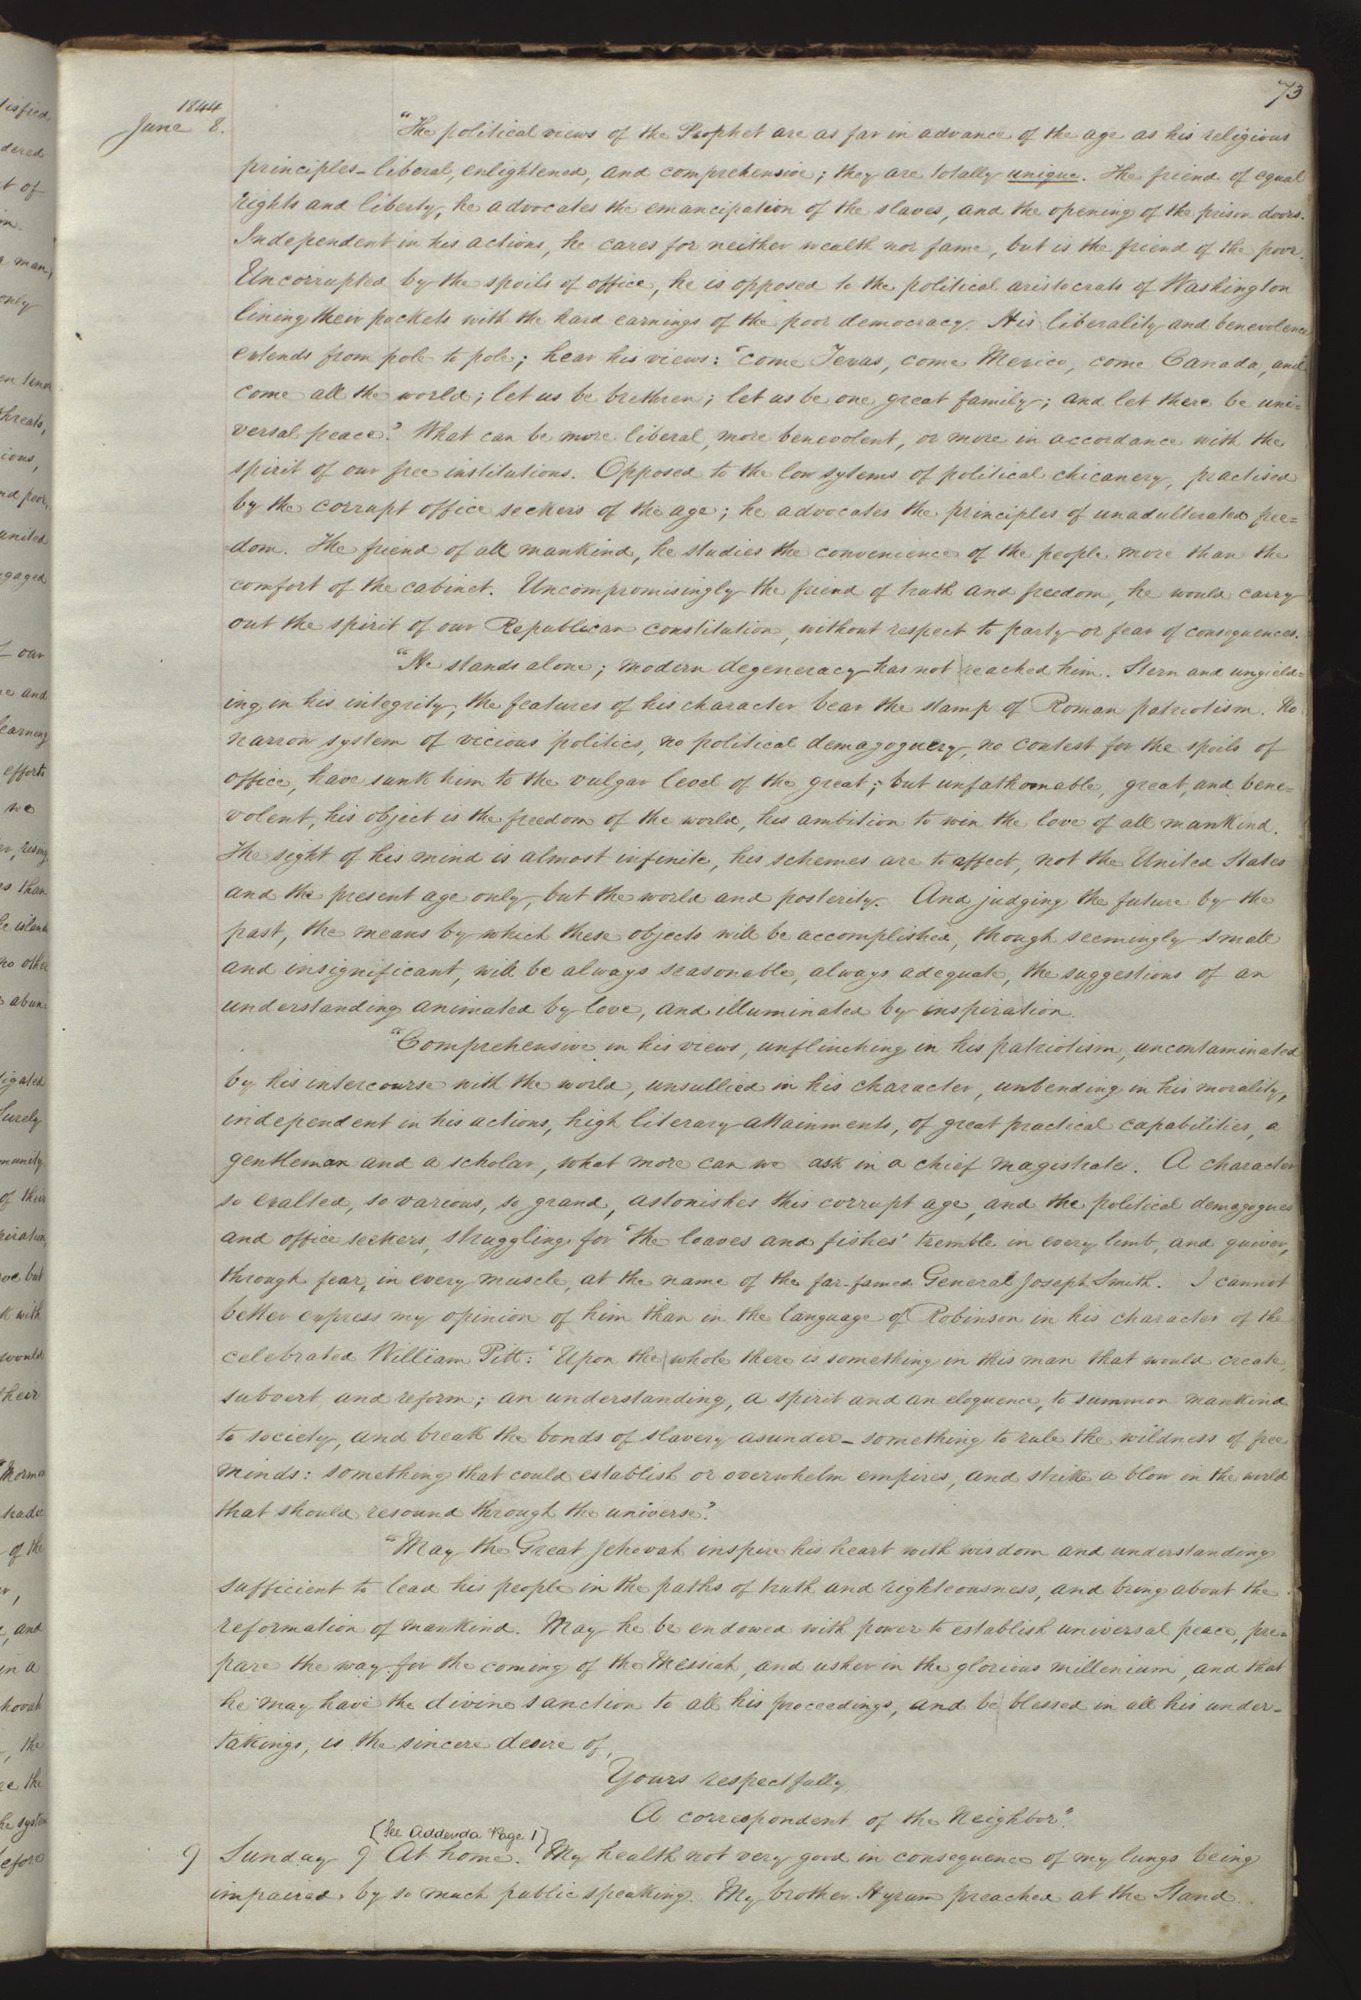 73
1844
June 8.
"The political views of the Prophet are as far in advance of the age as his religious
principles – liberal, enlightened, and comprehensive; they are totally unique. The friend of equal
rights and liberty, he advocates the emancipation of the slaves, and the opening of the prison doors.
Independent in his actions, he cares for neither wealth nor fame, but is the friend of the poor.
Uncorrupted by the spoils of office, he is opposed to the political aristocrats of Washington
lining their pockets with the hard earnings of the poor democracy. His liberality and benevolence
extends from pole to pole; hear his views: "come Texas, come Mexico, come Canada, and
come all the world; let us be brethren; let us be one great family; and let there be uni=
versal peace." What can be more liberal, more benevolent, or more in accordance with the
spirit of our free institutions. Opposed to the low sytems of political chicanery, practised
by the corrupt office seekers of the age; he advocates the principles of unadulterated free=
=dom. The friend of all mankind, he studies the convenience of the people more than the
comfort of the cabinet. Uncompromisingly the friend of truth and freedom, he would carry
out the spirit of our Republican constitution, without respect to party or fear of consequences.
"He stands alone; modern degeneracy has not reached him. Stern and unyield=
ing in his integrity, the features of his character bear the stamp of Roman patriotism. No
narrow system of vicious politics, no political demagoguery, no contest for the spoils of
office, have sunk him to the vulgar level of the great; but unfathomable, great, and bene=
volent, his object is the freedom of the world, his ambition to win the love of all mankind.
The sight of his mind is almost infinite, his schemes are to affect, not the United States
and the present age only, but the world and posterity. And judging the future by the
past, the means by which these objects will be accomplished, though seemingly small
and insignificant, will be always seasonable, always adequate, the suggestions of an
understanding animated by love, and illuminated by inspiration.
"Comprehensive in his views, unflinching in his patriotism, uncontaminated
by his intercourse with the world, unsullied in his character, unbending in his morality,
independent in his actions, high literary attainments, of great practical capabilities, a
gentleman and a scholar, what more can we ask in a chief magistrate. A character
so exalted, so various, so grand, astonishes this corrupt age, and the political demagogues
and office seekers, struggling for 'the loaves and fishes' tremble in every limb, and quiver,
through fear, in every muscle, at the name of the far-famed General Joseph Smith. I cannot
better express my opinion of him than in the language of Robinson in his character of the
celebrated William Pitt: 'Upon the whole there is something in this man that would create,
subvert and reform; an understanding, a spirit and an eloquence, to summon mankind
to society, and break the bonds of slavery asunder – something to rule the wildness of free
minds: something that could establish or overwhelm empires, and strike a blow in the world
that should resound through the universe.'
"May the Great Jehovah inspire his heart with wisdom and understanding
sufficient to lead his people in the paths of truth and righteousness, and bring about the
reformation of mankind. May he be endowed with power to establish universal peace, pre=
pare the way for the coming of the Messiah, and usher in the glorious millenium, and that
he may have the divine sanction to all his proceedings, and be blessed in all his under-
takings, is the sincere desire of,
Yours respectfully,
A correspondent of the Neighbor."
[See Addenda Page 1]
9 Sunday 9 At home. My health not very good in consequence of my lungs being
impaired by so much public speaking. My brother Hyrum preached at the Stand.